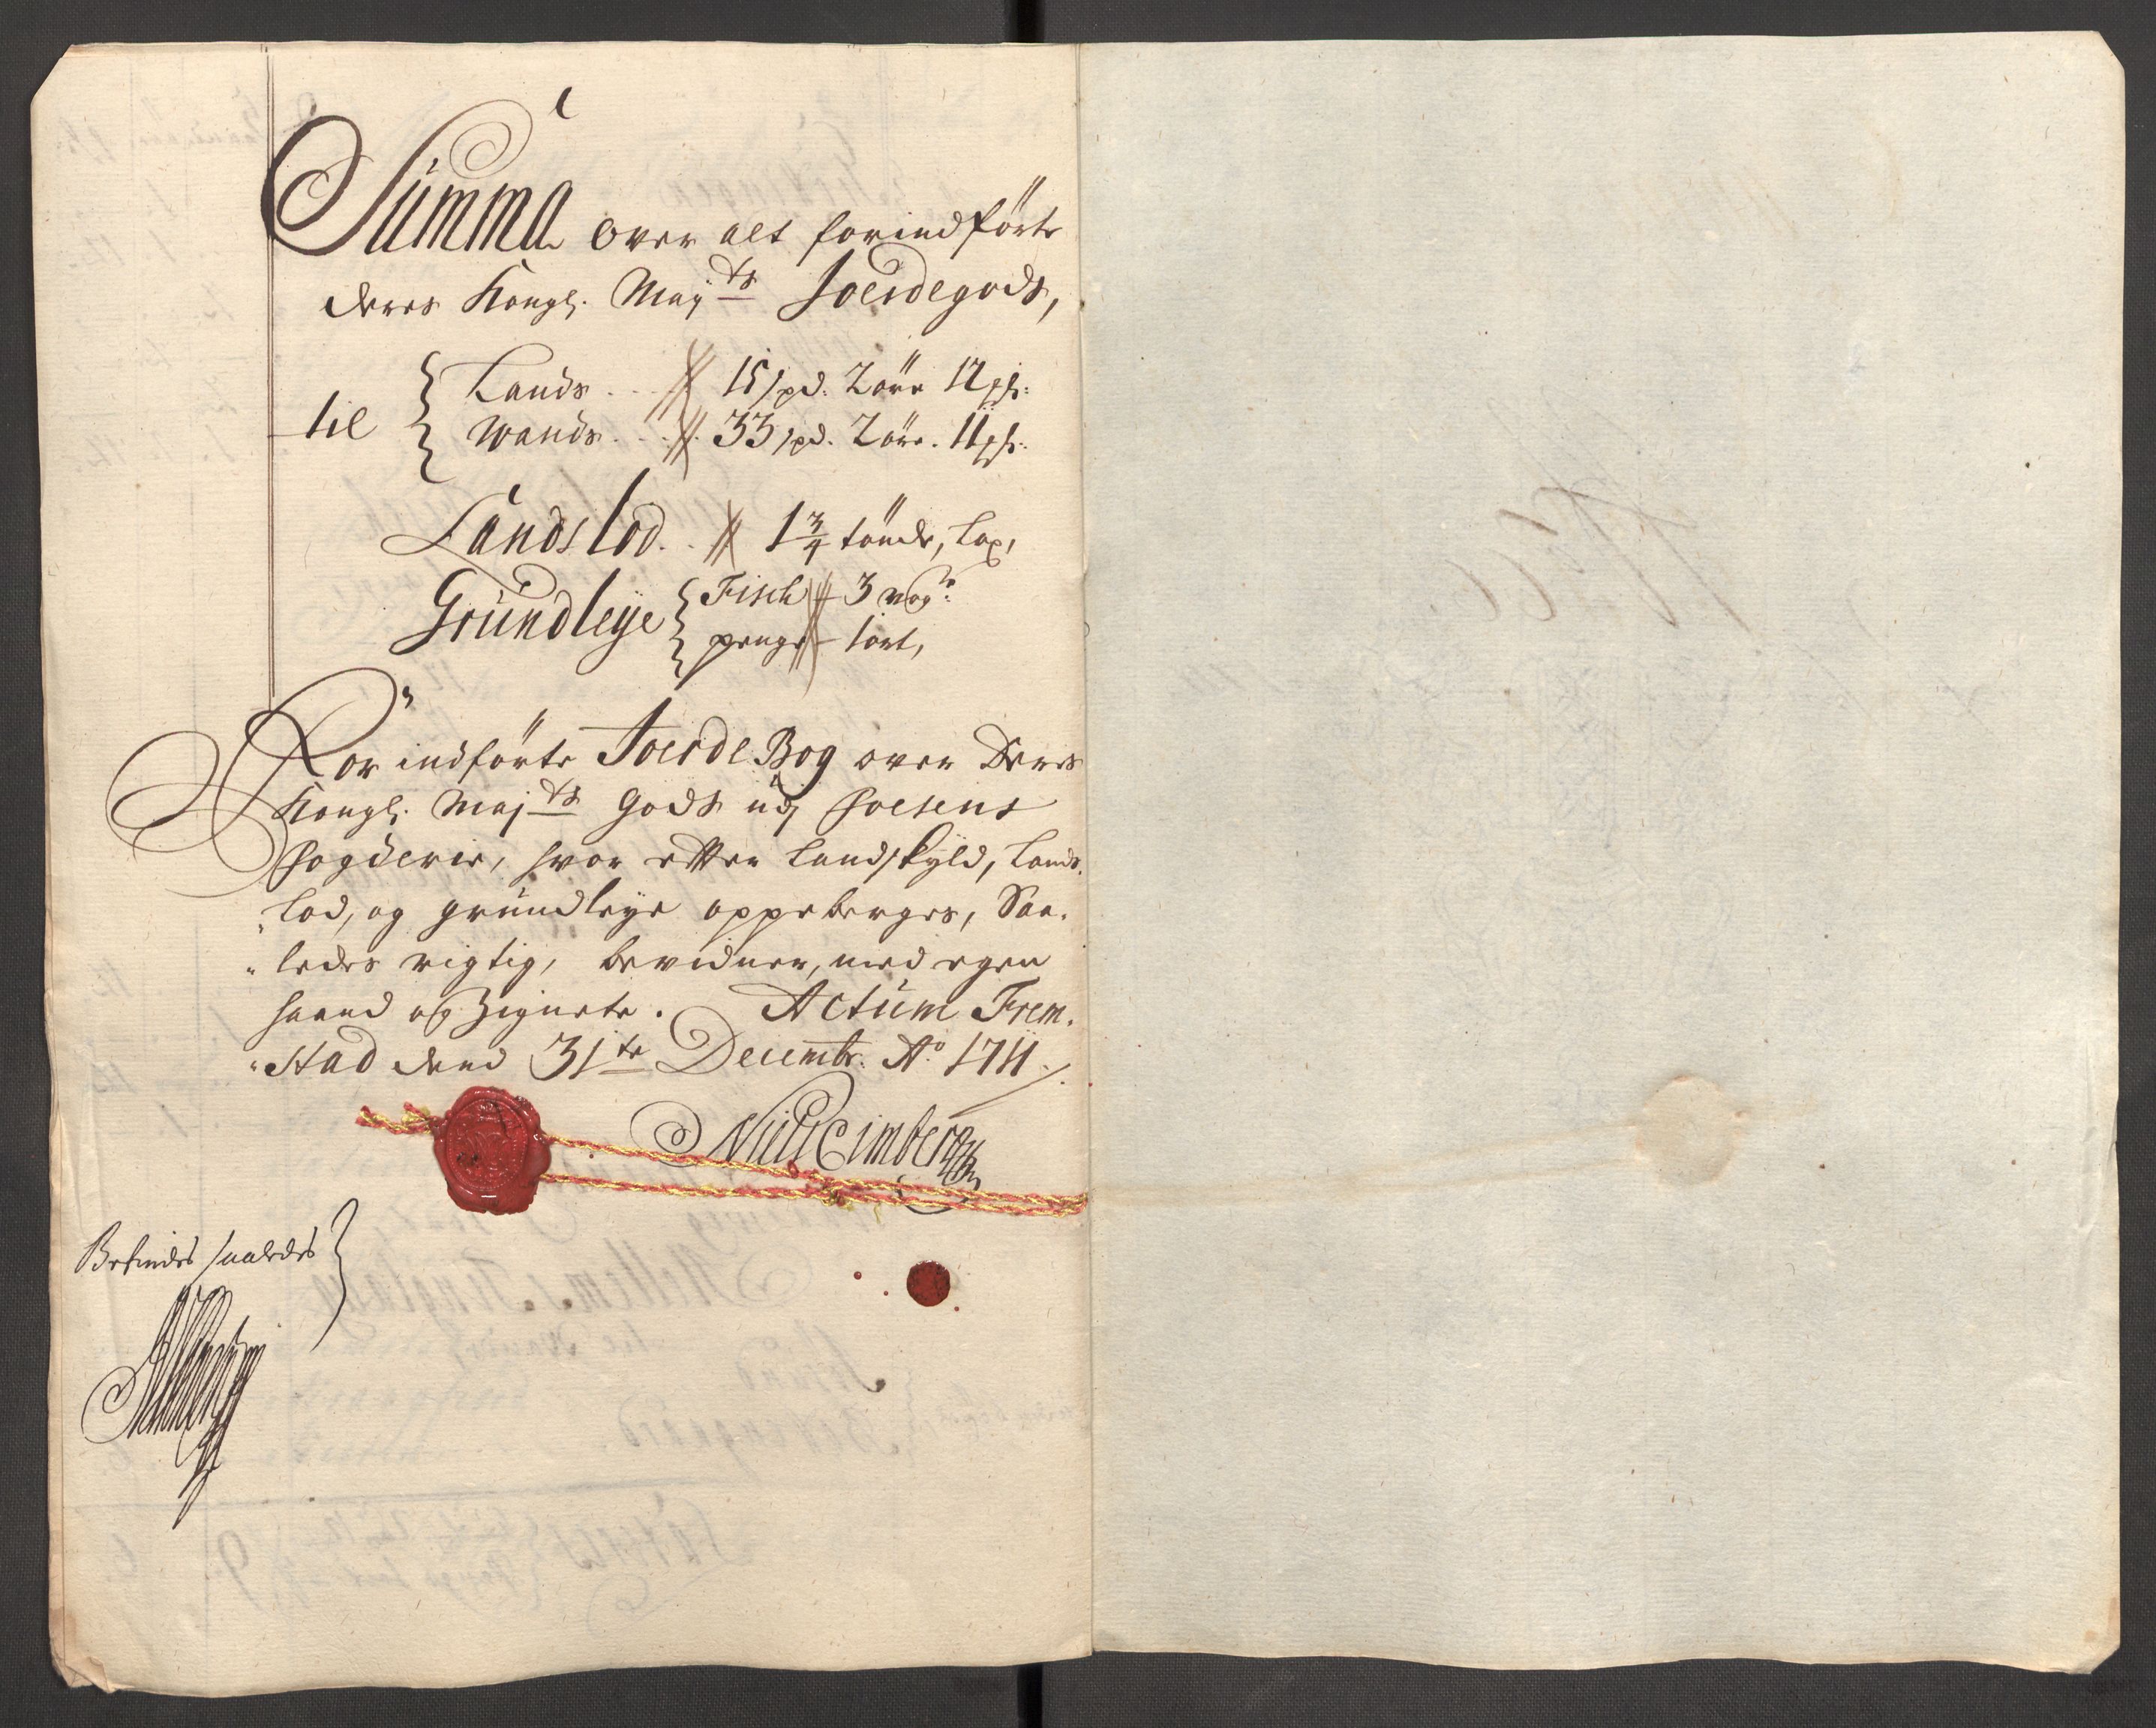 Summa over alt forindförte
deres Kongl. May:ts Joerdegods,
til { Lands .. 15 spd. 2 öre 12 ps:
Wands ... 33 spd. 2 öre. 11 ps:
Landslod .. 1 3/4 tönde, Lax,
Grundleye { Fisch 3 wog:r
penge 1 ort,
For indförte Joerde Bog over Deres
Kongl. Maj:ts Gods udj Fosens
Fogderie, hvor efter Landskyld, Lands-
lod, og grundleye oppeberges, Saa-
ledes rigtig, bevidner, med egen
haand og Zignete. Actum Frem-
stad dend 31te Decembr. Ao 1711.
Befindes saaledes }